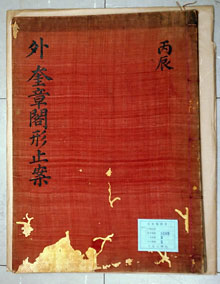 丙辰
外奎章閣形止案